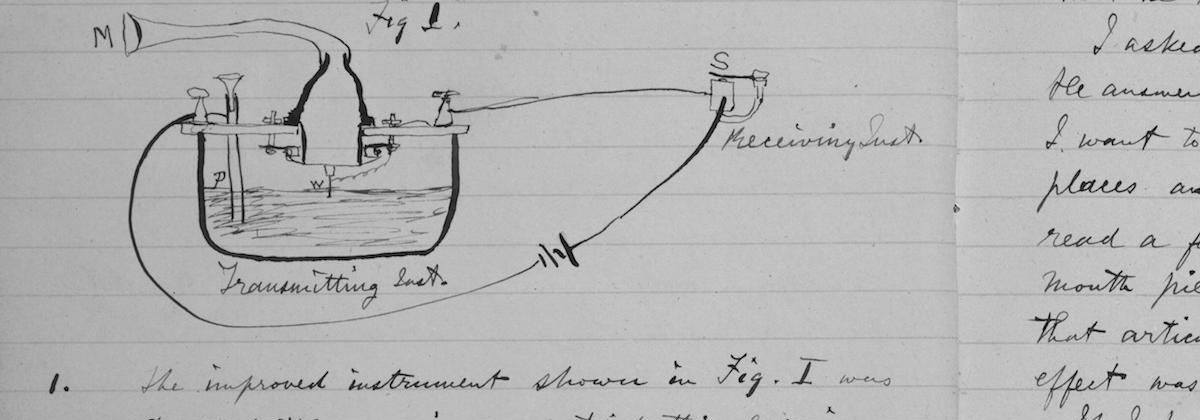 Fig I.
M
S
Receiving Inst.
P
W
Transmitting Inst.
1. The improved instrument shown in Fig. I was
I asked
the answer
I want to
places an
read a f
mouth pie
that artic
effect was